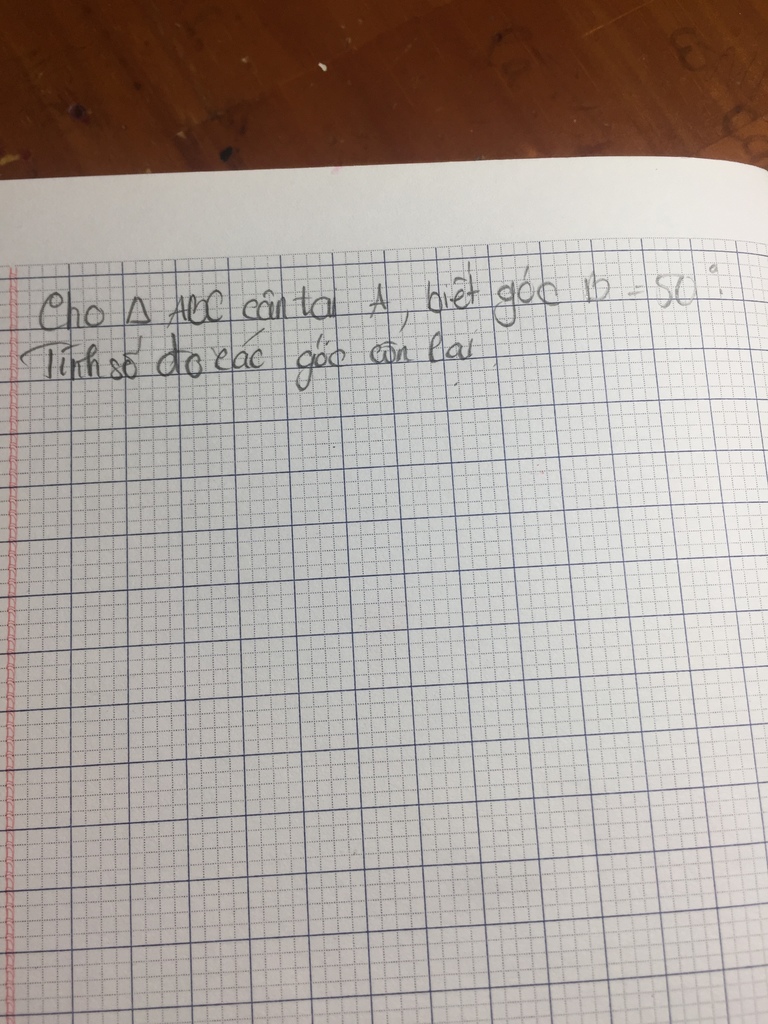 Cho Δ ABC cân tại A, biết góc B = 50°.
Tính số đo các góc còn lại